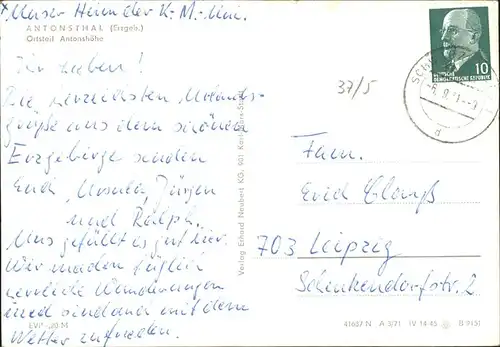 x Unser Heim der K.-M.-Uni.
ANTONSTHAL (Erzgeb.)
Ortsteil Antonshöhe
Ihr Lieben!
Die herzlichsten Urlaubs-
grüße aus dem schönen
Erzgebirge senden
Euch, Ursula, Jürgen
und Ralph.
Uns gefällt es gut hier.
Wir machen täglich
herrliche Wanderungen
und sind auch mit dem
Wetter zufrieden.
EVP -,20 M
Verlag Erhard Neubert KG, 901 Karl-Marx-Stadt
37/5
10
DEUTSCHE
DEMOKRATISCHE REPUBLIK
Fam.
Erid Clauß
703 Leipzig
Schenkendorfstr. 2
41607 N A 3/71 IV 14-45 B 9951